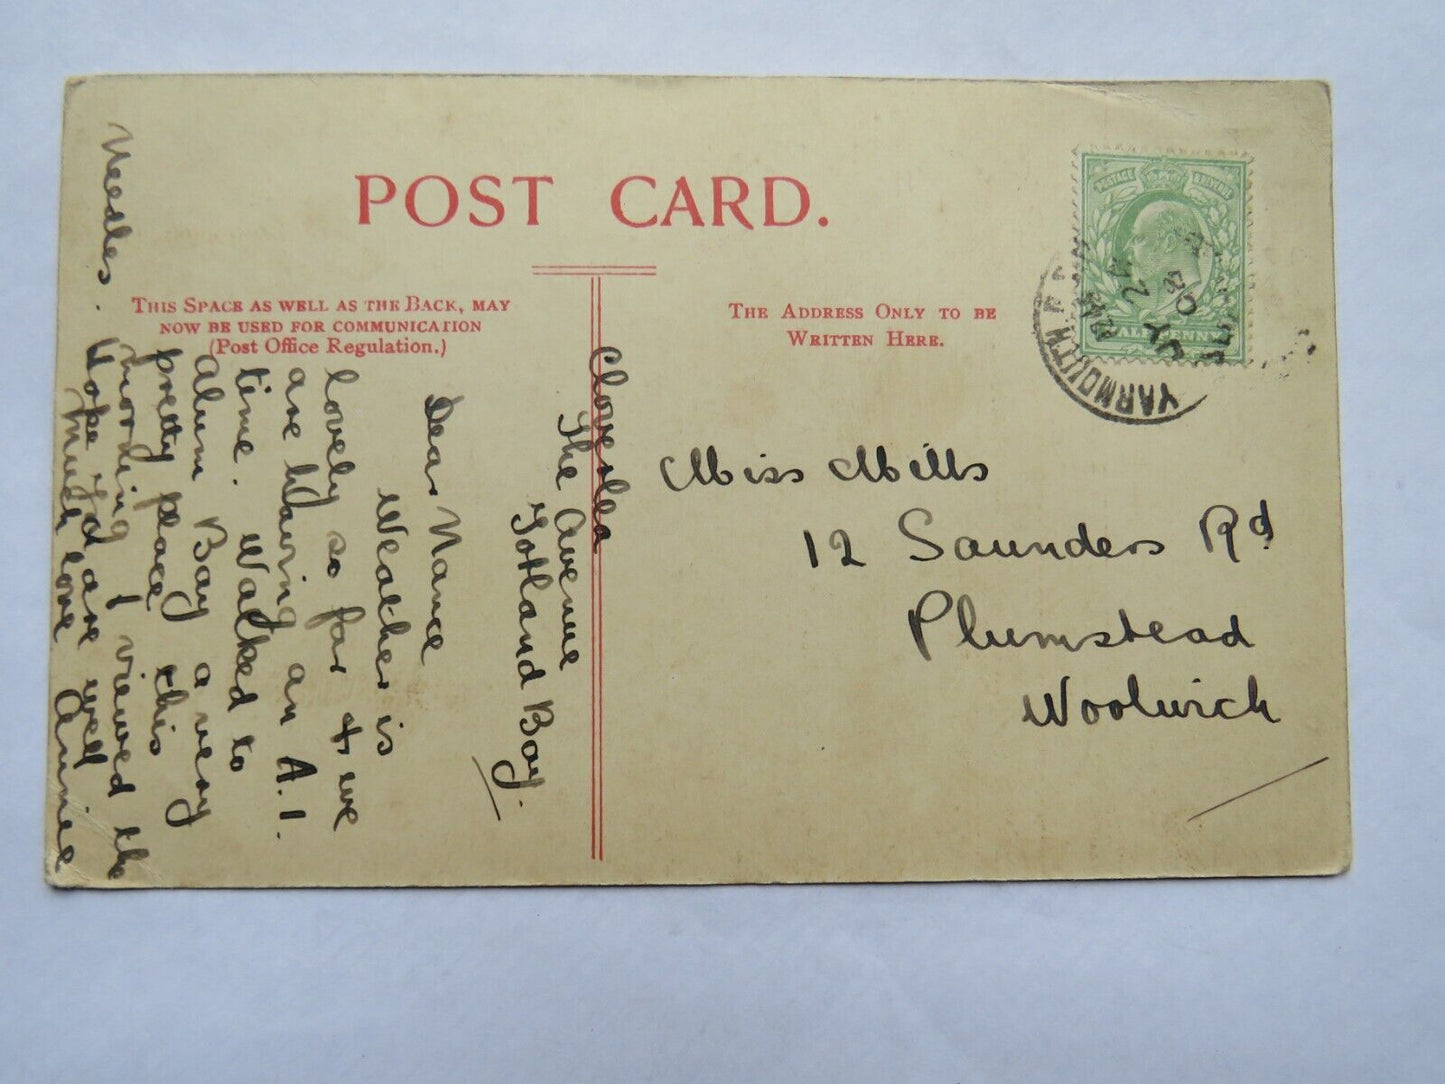 POST CARD.
THIS SPACE AS WELL AS THE BACK, MAY
NOW BE USED FOR COMMUNICATION
(Post Office Regulation.)
THE ADDRESS ONLY TO BE
WRITTEN HERE.
POSTAGE & REVENUE
HALF PENNY
YARMOUTH
JY 2
Miss Mills
12 Saunders Rd
Plumstead
Woolwich
The Avenue
Totland Bay.
Dear Nance
Weather is
lovely so far & we
are having an A.1.
time. Walked to
Alum Bay a very
pretty place this
morning & viewed the
Needles.
Hope Yd are well
Much love Annie